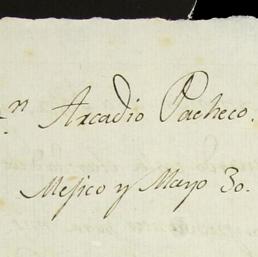 n Arcadio Pacheco.
Mejico y Mayo 30.